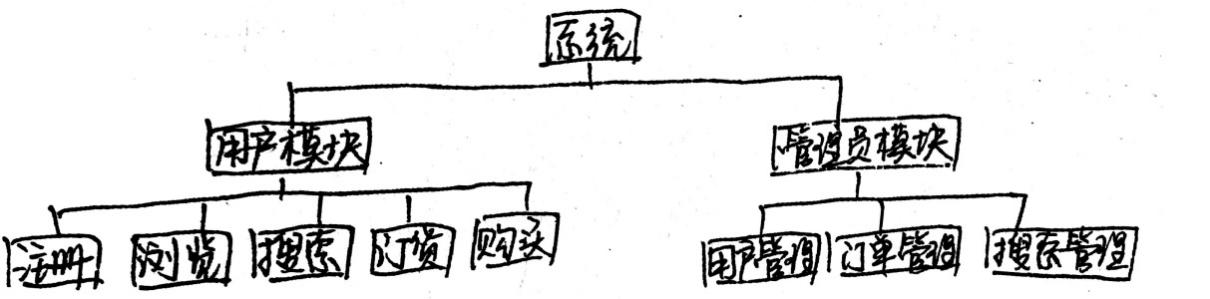 系统
用户模块 管理员模块
注册 浏览 搜索 订货 购买 用户管理 订单管理 搜索管理